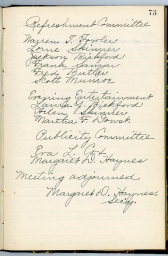 73
Refreshment Committee
Warren F. Fowler
Lorne Skinner
Jackson Bickford
Frank
Mrs. Butler
Scott Munroe
Evening Entertainment
Laura G. Bickford
Helen Skinner
Martha F.
Publicity Committee
Eva L. Cox
Margaret D. Haynes
Meeting adjourned
Margaret D. Haynes,
Sec'y.